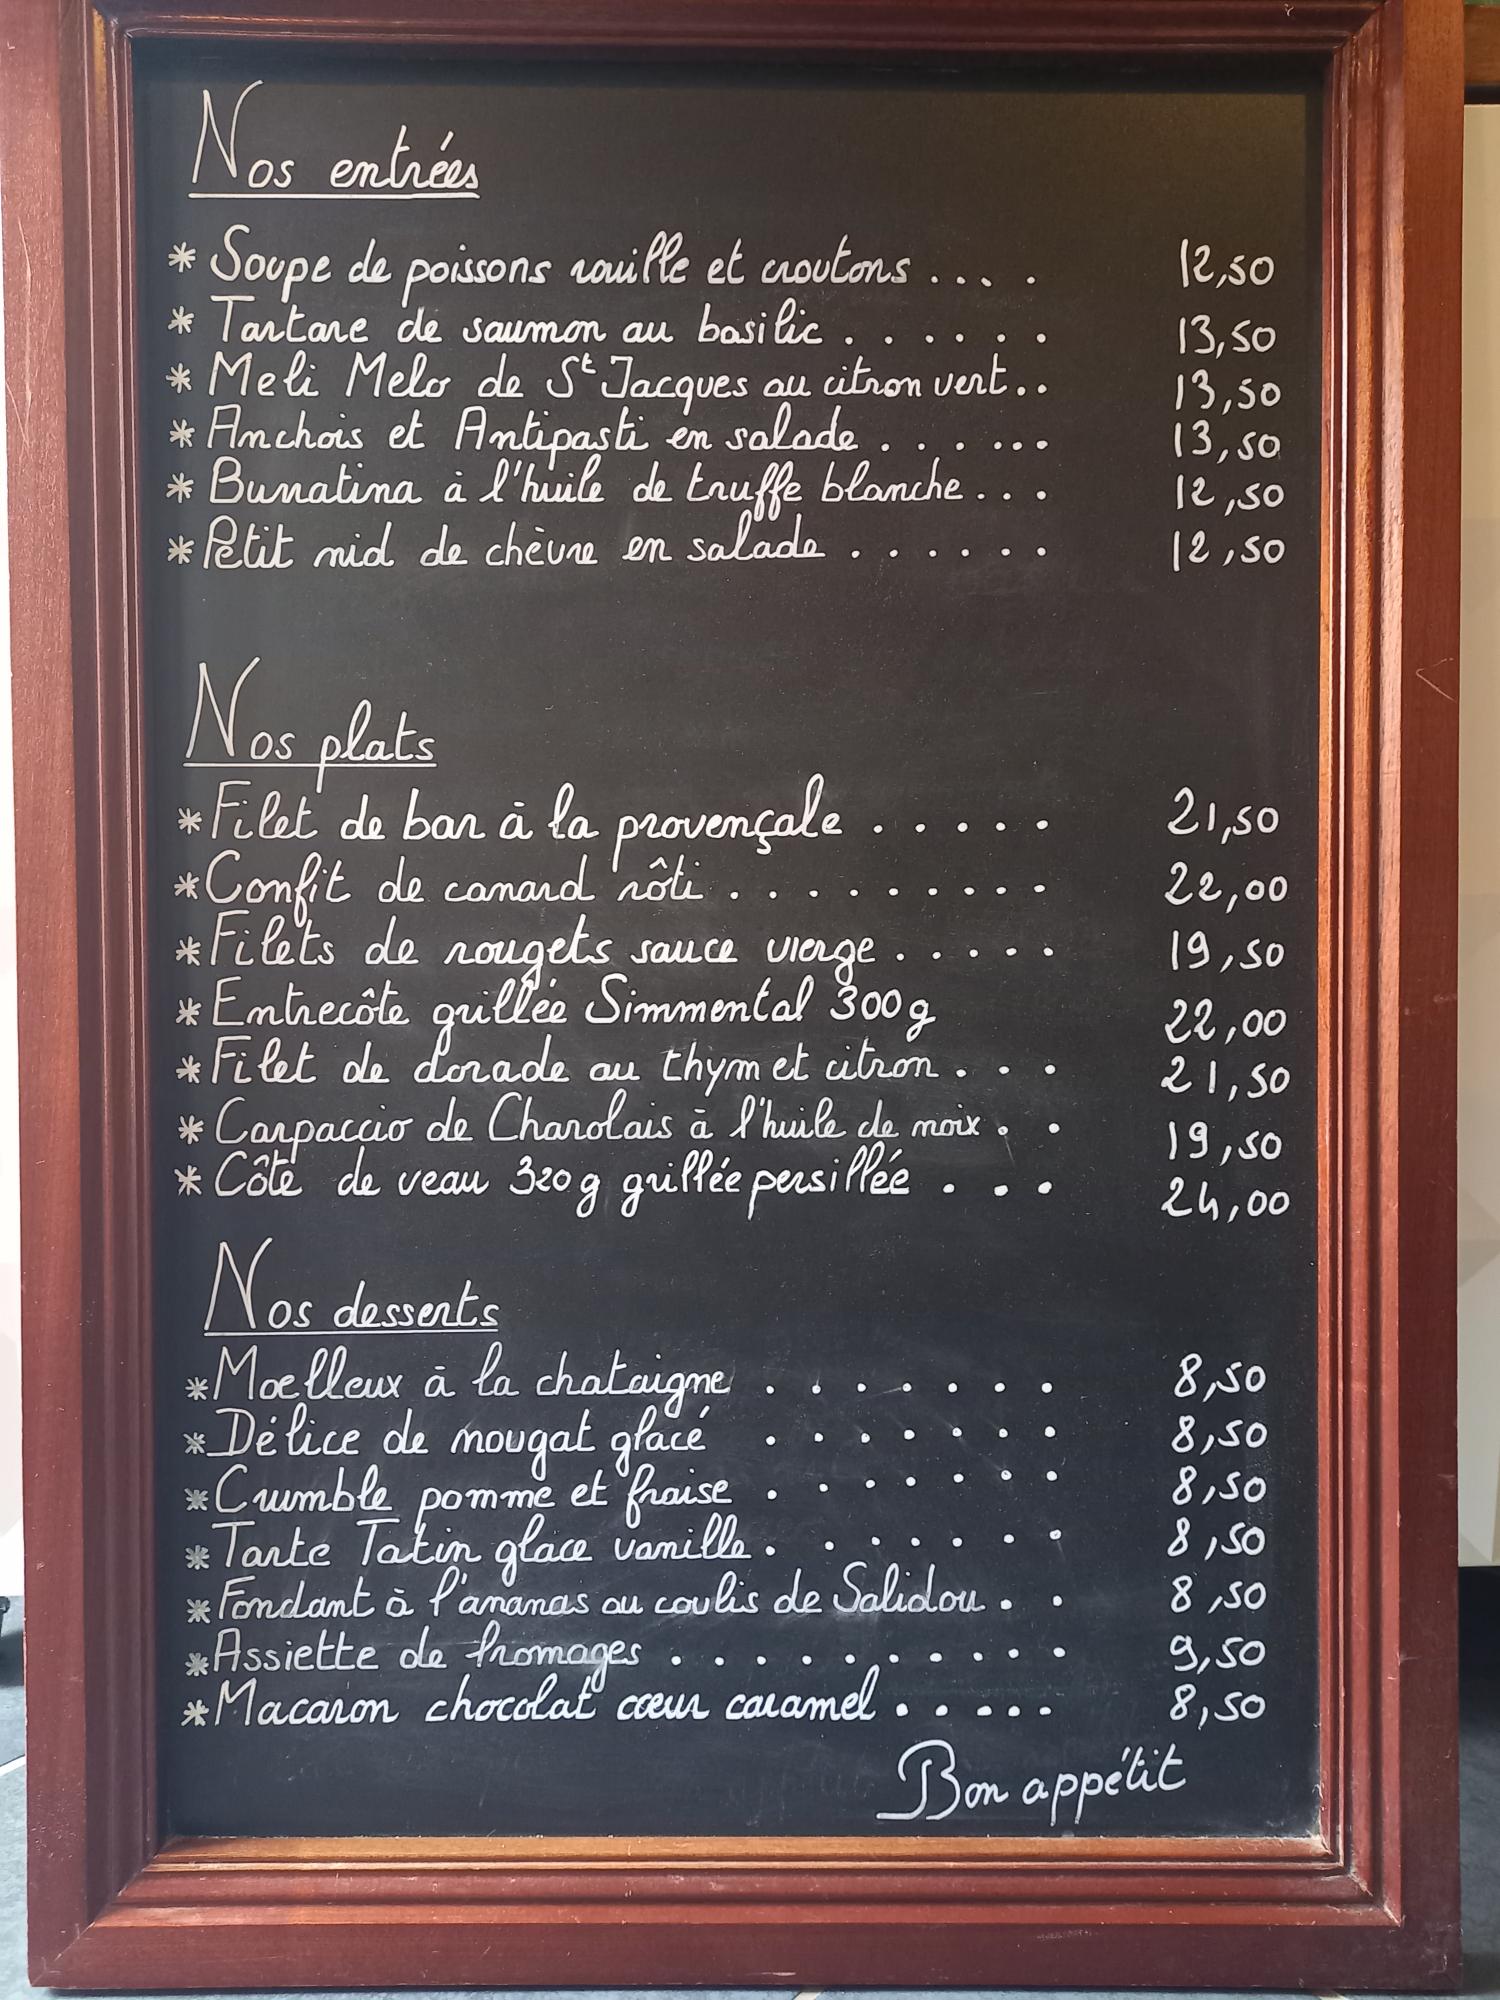 Nos entrées
* Soupe de poissons rouille et croutons .... 12,50
* Tartare de saumon au basilic ...... 13,50
* Meli Melo de St Jacques au citron vert.. 13,50
* Anchois et Antipasti en salade ...... 13,50
* Burratina à l'huile de truffe blanche ... 12,50
* Petit nid de chèvre en salade ...... 12,50
Nos plats
* Filet de bar à la provençale ..... 21,50
* Confit de canard rôti ......... 22,00
* Filets de rougets sauce vierge ..... 19,50
* Entrecôte grillée Simmental 300g 22,00
* Filet de dorade au thym et citron ... 21,50
* Carpaccio de Charolais à l'huile de noix .. 19,50
* Côte de veau 320g grillée persillée ... 24,00
Nos desserts
* Moelleux à la chataigne ....... 8,50
* Délice de nougat glacé ....... 8,50
* Crumble pomme et fraise ....... 8,50
* Tarte Tatin glace vanille ....... 8,50
* Fondant à l'ananas au coulis de Salidou .. 8,50
* Assiette de fromages .......... 9,50
* Macaron chocolat cœur caramel ..... 8,50
Bon appétit